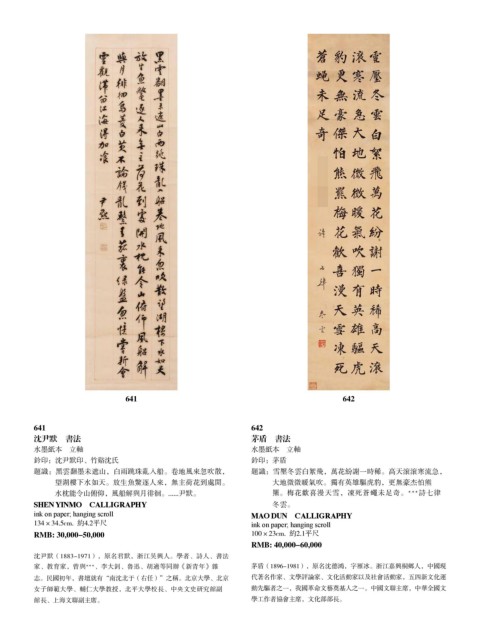 靈觀濟翁江海得加飡
尹默
雪壓冬雲白絮飛萬花紛謝一時稀高天滾
滾寒流急大地微微暖氣吹獨有英雄驅虎
豹更無豪傑怕熊羆梅花歡喜漫天雪凍死
蒼蠅未足奇
641
642
641
沈尹默　書法
水墨紙本　立軸
鈐印：沈尹默印、竹谿沈氏
題識：黑雲翻墨未遮山，白雨跳珠亂入船。卷地風來忽吹散，
望湖樓下水如天。放生魚鱉逐人來，無主荷花到處開。
水枕能令山俯仰，風船解與月徘徊。......尹默。
SHEN YINMO　CALLIGRAPHY
ink on paper; hanging scroll
134×34.5cm. 約4.2平尺
RMB: 30,000–50,000
沈尹默（1883–1971），原名君默，浙江吳興人。學者、詩人、書法
家、教育家。曾與***、李大釗、魯迅、胡適等同辦《新青年》雜
志。民國初年，書壇就有“南沈北于（右任）”之稱。北京大學、北京
女子師範大學、輔仁大學教授、北平大學校長、中央文史研究館副
館長、上海文聯副主席。
642
茅盾　書法
水墨紙本　立軸
鈐印：茅盾
題識：雪壓冬雲白絮飛，萬花紛謝一時稀。高天滾滾寒流急，
大地微微暖氣吹。獨有英雄驅虎豹，更無豪杰怕熊
羆。梅花歡喜漫天雪，凍死蒼蠅未足奇。***詩七律
冬雲。
MAO DUN　CALLIGRAPHY
ink on paper; hanging scroll
100×23cm. 約2.1平尺
RMB: 40,000–60,000
茅盾（1896–1981），原名沈德鴻，字雁冰。浙江嘉興桐鄉人，中國現
代著名作家、文學評論家、文化活動家以及社會活動家，五四新文化運
動先驅者之一，我國革命文藝奠基人之一。中國文聯主席、中華全國文
學工作者協會主席、文化部部長。